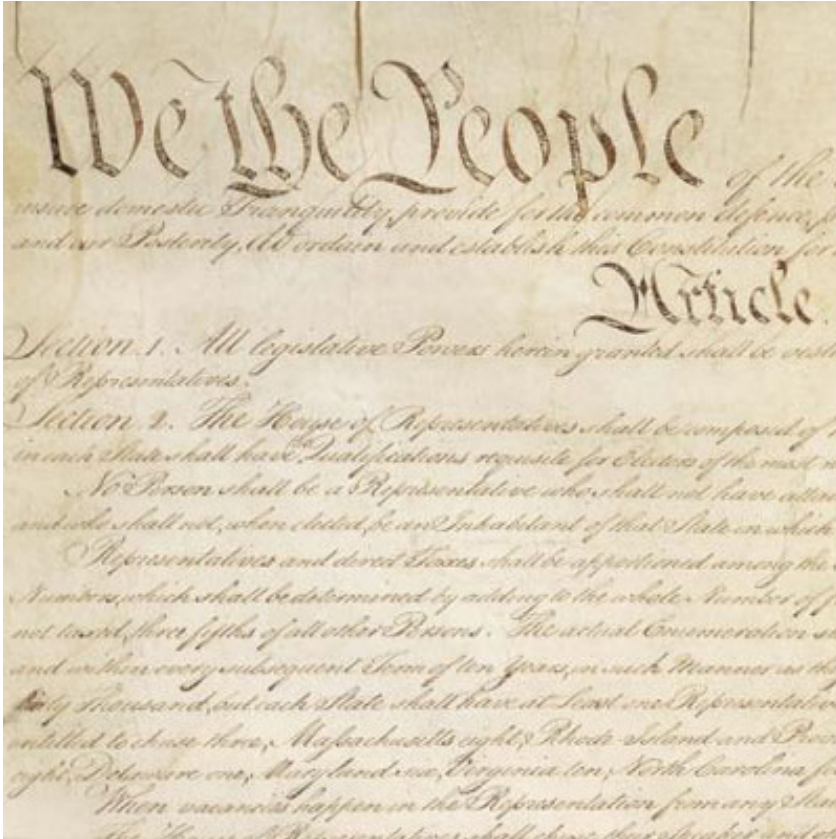 We the People of the
insure domestic Tranquility, provide for the common defence,
and our Posterity, do ordain and establish this Constitution for
Article.
Section. 1. All legislative Powers herein granted shall be
of Representatives.
Section. 2. The House of Representatives shall be composed of
in each State shall have Qualifications requisite for Electors of the most
No Person shall be a Representative who shall not have
and who shall not, when elected, be an Inhabitant of that State in which
Representatives and direct Taxes shall be apportioned among the
Numbers, which shall be determined by adding to the whole Number of
not taxed, three fifths of all other Persons. The actual Enumeration
and within every subsequent Term of ten Years, in such Manner as
thirty Thousand, but each State shall have at Least one Representative
entitled to chuse three, Massachusetts eight, Rhode-Island and
eight, Delaware one, Maryland six, Virginia ten, North Carolina
When vacancies happen in the Representation from any
the House of Representatives shall chuse their